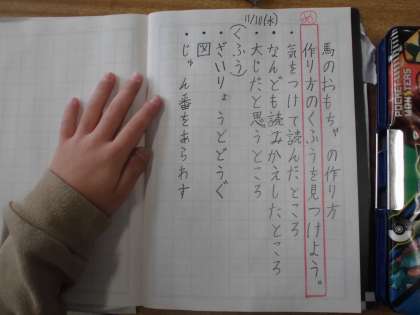 11/10(水)
馬のおもちゃの作り方
め 作り方のくふうを見つけよう。
・気をつけて読んだところ
・なんども読みかえしたところ
・大じだと思うところ
(くふう)
・ざいりょうとどうぐ
・図
・じゅん番をあらわす